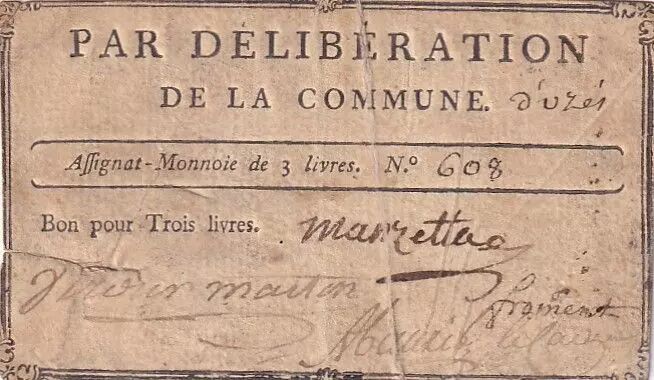 PAR DÉLIBÉRATION
DE LA COMMUNE. d'uzès
Assignat-Monnoie de 3 livres. N.º 608
Bon pour Trois livres.
martin
froment